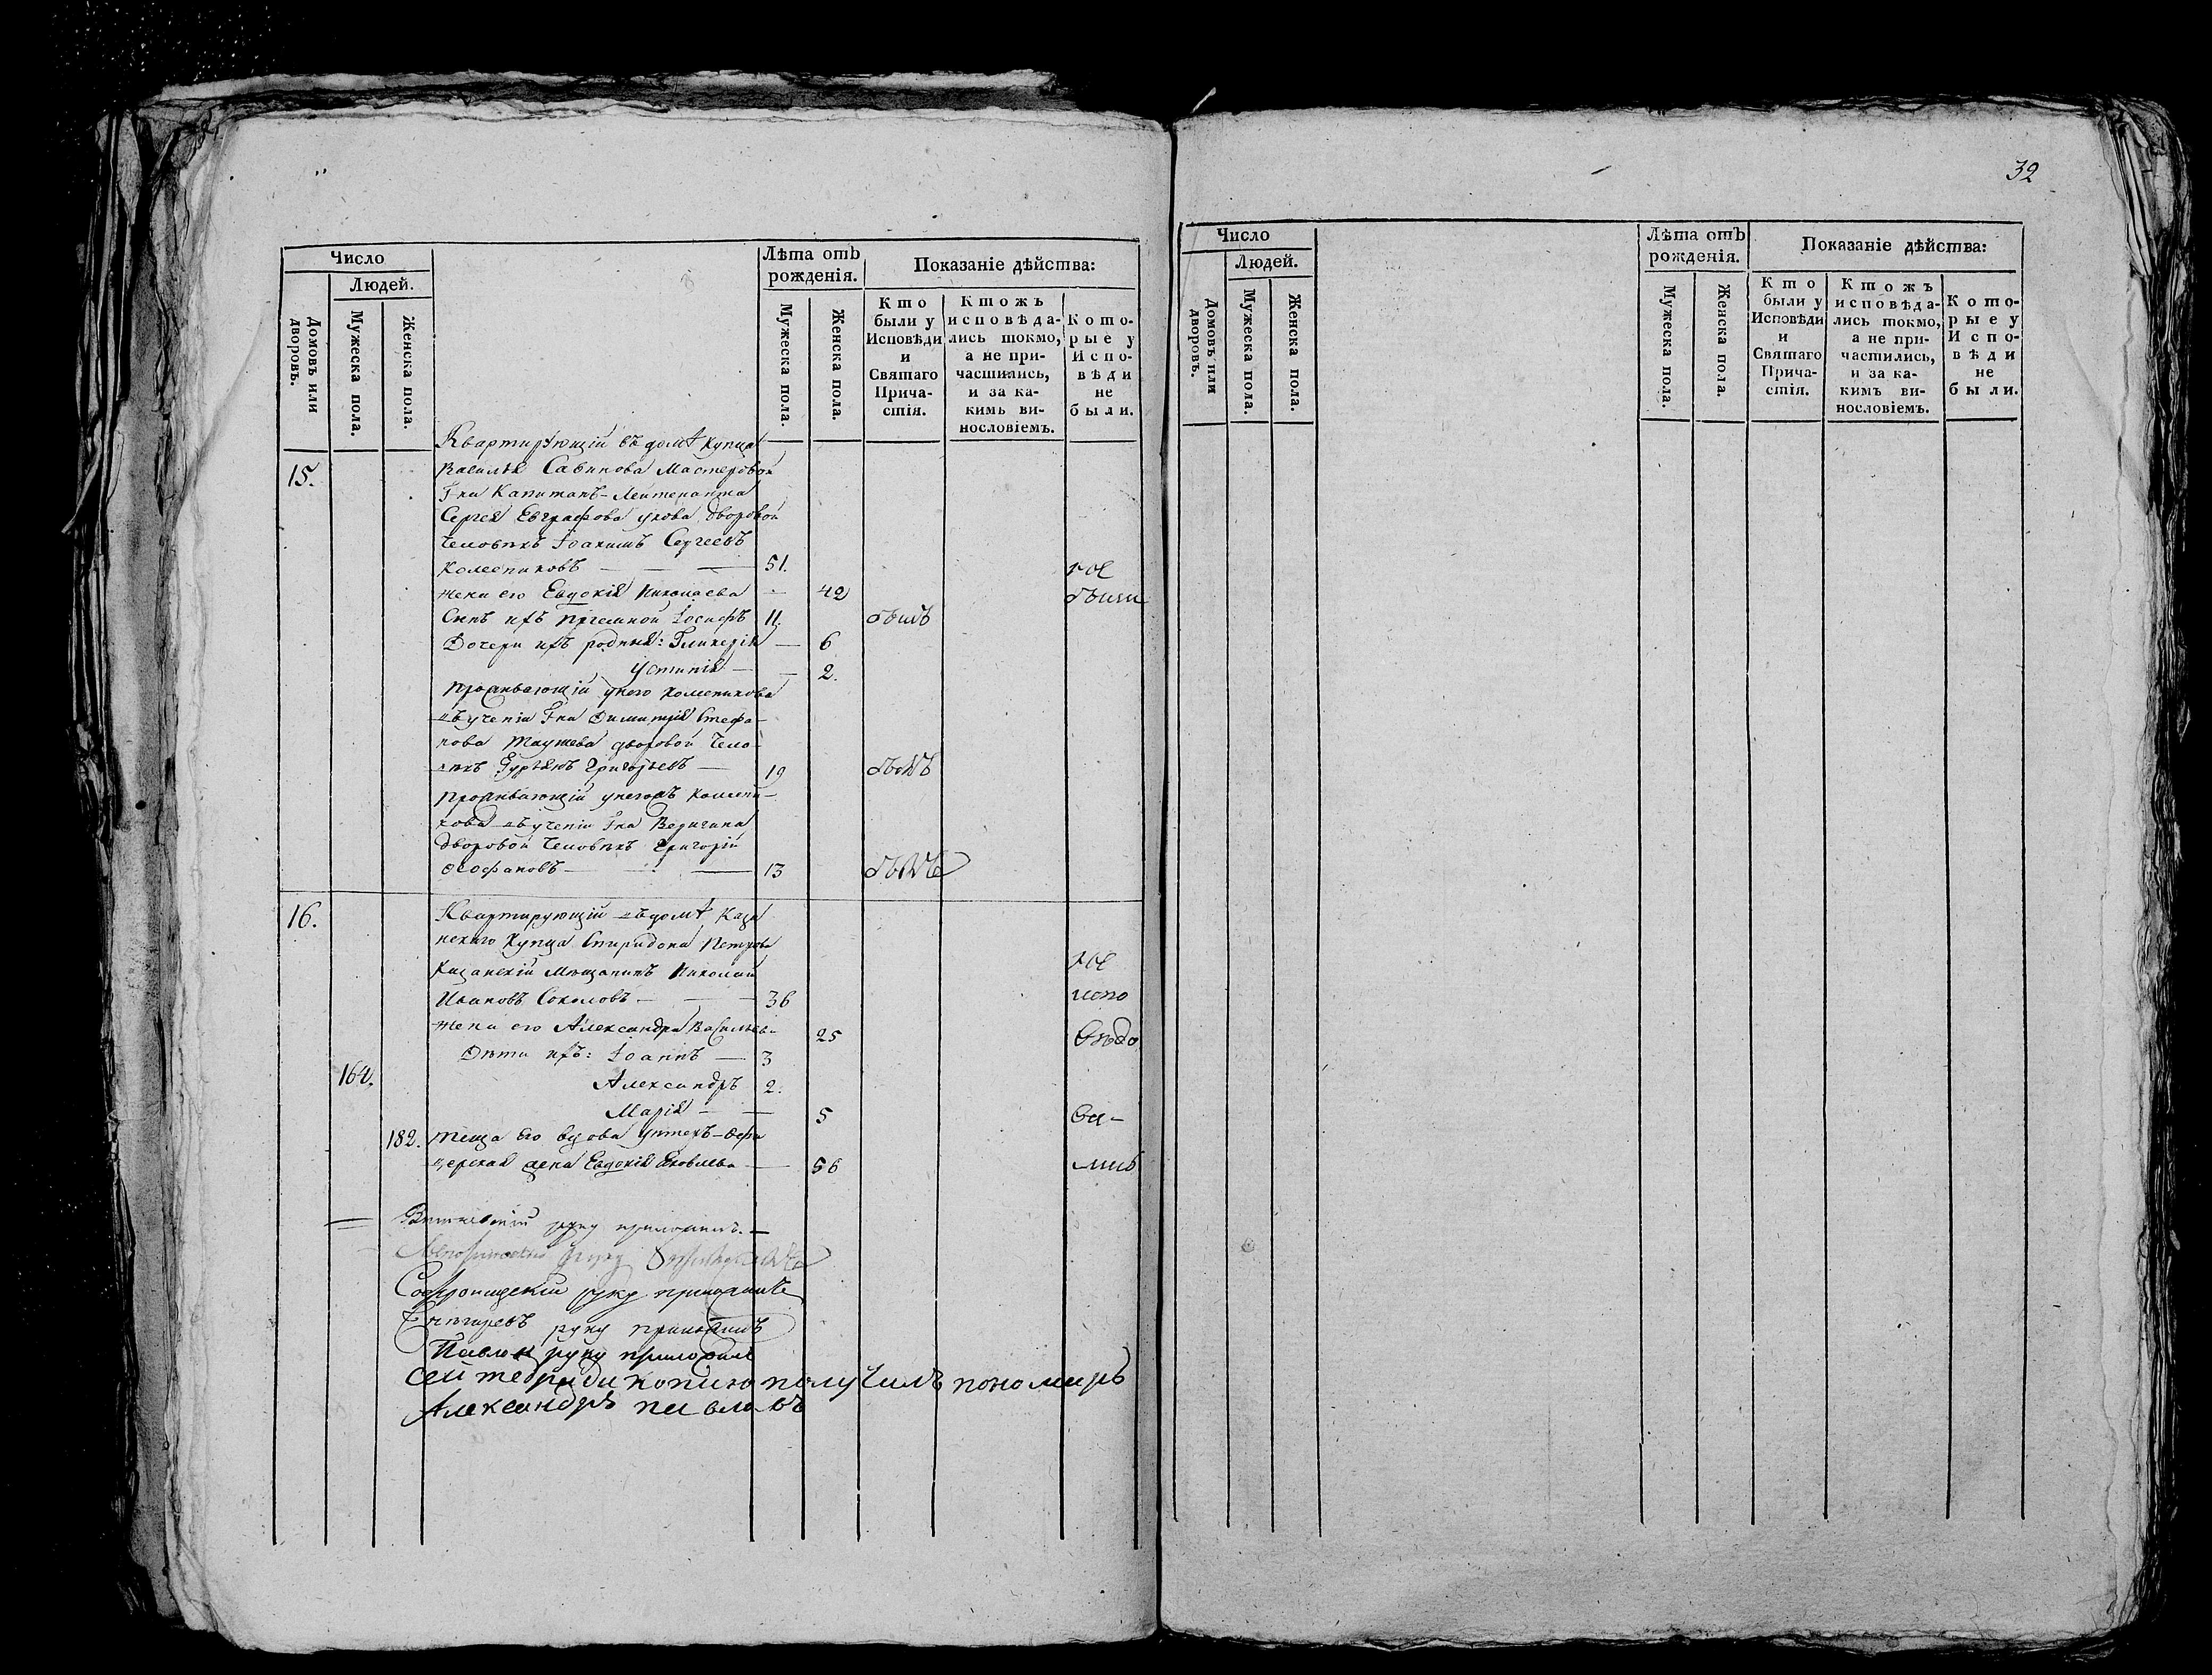 Число
Людей.
Домовъ или дворовъ.
Мужеска пола.
Женска пола.
Лѣта отъ рожденія.
Мужеска пола.
Женска пола.
Показаніе дѣйства:
Кто были у Исповѣди и Святаго Причастія.
Ктожъ исповѣдались токмо, а не причастились, и за какимъ винословіемъ.
Которые у Исповѣди не были.
Квартирующій въ домѣ купца
15. Василья Савинова Мастеровой
Гна Капитанъ-Лейтенанта
Сергея Евграфова дворовой
человѣкъ Іоакимъ Сергеевъ
Колесниковъ — — 51. не
жена его Евдокія Николаева — 42 были
Сынъ ихъ приемной Іосифъ 11. былъ
Дочери ихъ родныя: Гликерія — 6
Устинія — — 2.
Проживающій у него Колесникова
въ ученіи Гна Димитрія Стефа-
нова дворовой чело-
вѣкъ Гурьянъ Григорьевъ — 19 былъ
Проживающій у негожъ Колесни-
кова въ ученіи Гна
дворовой человѣкъ Григорій
Ѳеофановъ — — 13 былъ
16. Квартирующій въ домѣ Каза
нскаго купца Спиридона Петрова
Казанскій мѣщанинъ Николай не
Ивановъ Соколовъ — — 36 испо
жена его Александра Васильева 25 вѣдо
Дѣти ихъ: Іоаннъ — 3
164. Александръ 2.
Марія — — 5 ва-
182. теща его вдова унтеръ-офи
церская жена Евдокія Яковлева — 56 лись
руку приложилъ. —
руку приложилъ
руку приложилъ
Павловъ руку приложилъ
сей тетради копию получилъ пономарь
Александръ павловъ
32
Число
Людей.
Домовъ или дворовъ.
Мужеска пола.
Женска пола.
Лѣта отъ рожденія.
Мужеска пола.
Женска пола.
Показаніе дѣйства:
Кто были у Исповѣди и Святаго Причастія.
Ктожъ исповѣдались токмо, а не причастились, и за какимъ винословіемъ.
Которые у Исповѣди не были.